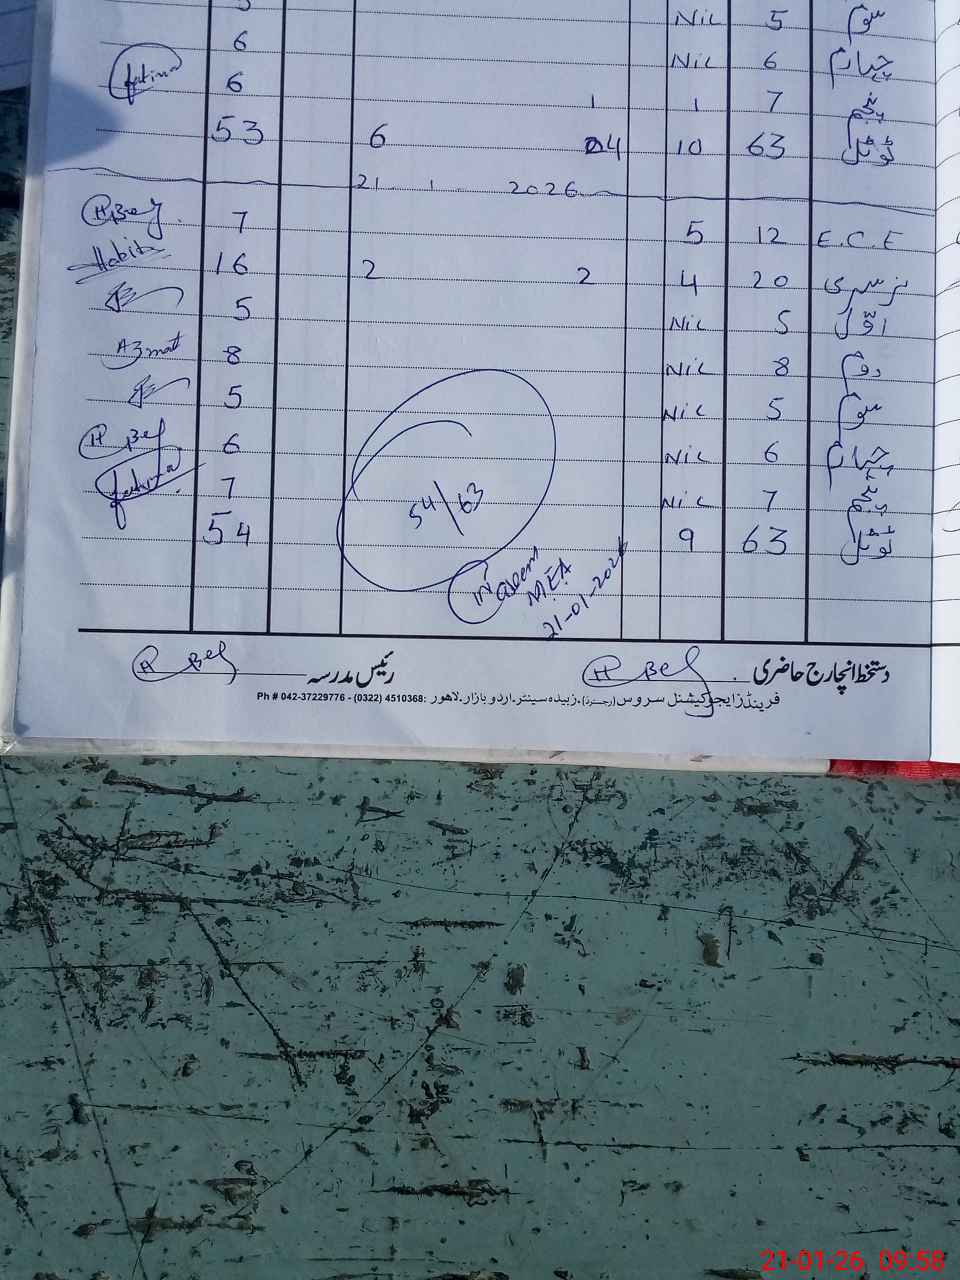 سوم 5 Nil 5
چہارم 6 Nil 6
پنجم 7 1 1 6 Fatima
ٹوٹل 63 10 04 6 53
21 1 2026
E.C.E 12 5 7 H Beg
نرسری 20 4 2 2 16 Habiba
اوّل 5 Nil 5
دوم 8 Nil 8 Azmat
سوم 5 Nil 5
چہارم 6 Nil 6 H Beg
پنجم 7 Nil 7 Fatima
ٹوٹل 63 9 54
54/63
Naseem
MEA
21-01-2026
دستخط انچارج حاضری H Beg رئیس مدرسہ H Beg
فرینڈز ایجوکیشنل سروس (رجسٹرڈ)۔ زبیدہ سینٹر۔ اردو بازار۔ لاہور Ph # 042-37229776 - (0322) 4510368:
21-01-26 09:58